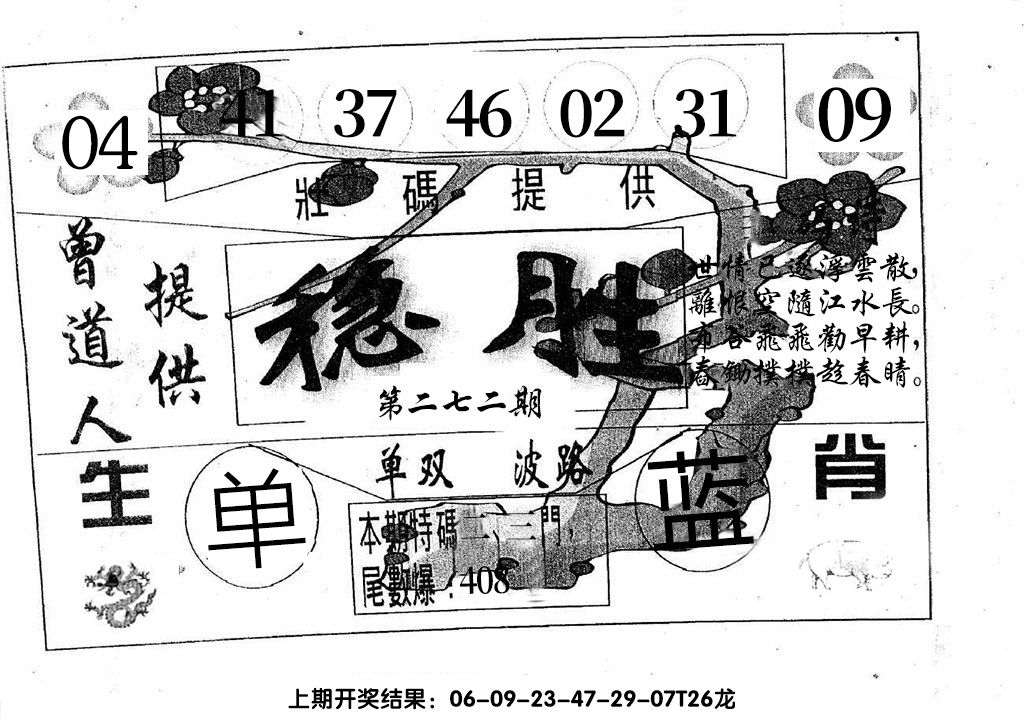 04 41 37 46 02 31 09
壯碼提供
曾道人
提供
稳胜
第二七二期
特
世情已逐浮雲散，
離恨空隨江水長。
布谷飛飛勸早耕，
舂鋤撲撲趁春晴。
单双 波路
生肖
单
蓝
本期特碼二、三門，
尾數爆：408
上期开奖结果：06-09-23-47-29-07T26龙